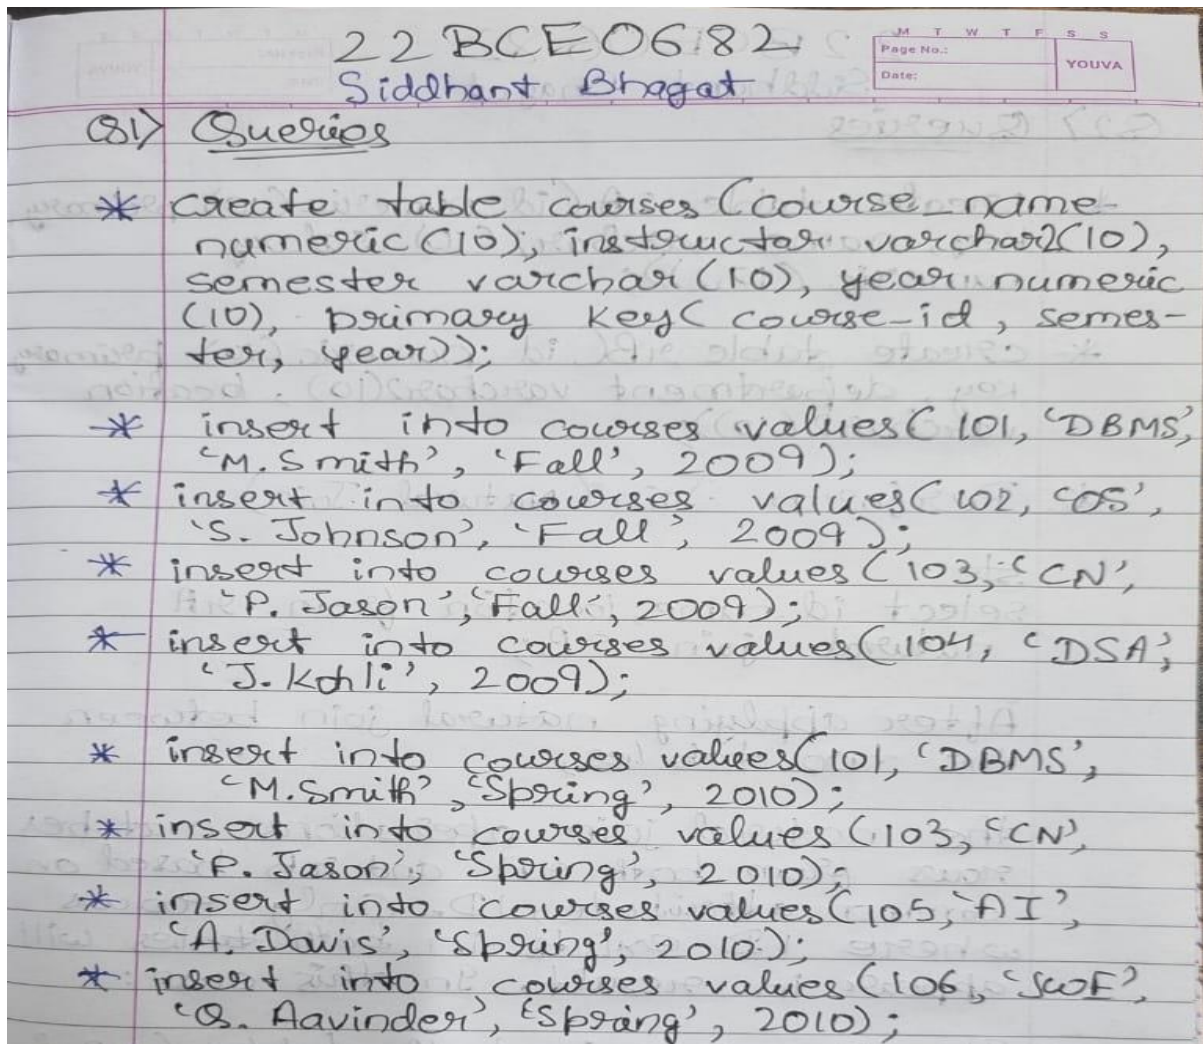 22BCE0682
M T W T F S S
Page No.:
YOUVA
Date:
Siddhant Bhagat
Q1) Queries
* create table courses (course_name
numeric (10), instructor varchar2(10),
semester varchar (10), year numeric
(10), primary key( course-id, semes-
ter, year));
* insert into courses values( 101, 'DBMS',
'M. Smith', 'Fall', 2009);
* insert into courses values( 102, 'OS',
'S. Johnson', 'Fall', 2009);
* insert into courses values (103, 'CN',
'P. Jason', 'Fall', 2009);
* insert into courses values(104, 'DSA',
'J. Kohli', 2009);
* insert into courses values(101, 'DBMS',
'M. Smith', 'Spring', 2010);
* insert into courses values (103, 'CN',
'P. Jason', 'Spring', 2010);
* insert into courses values(105, 'AI',
'A. Davis', 'Spring', 2010);
* insert into courses values (106,
Aavinder', 'Spring', 2010);